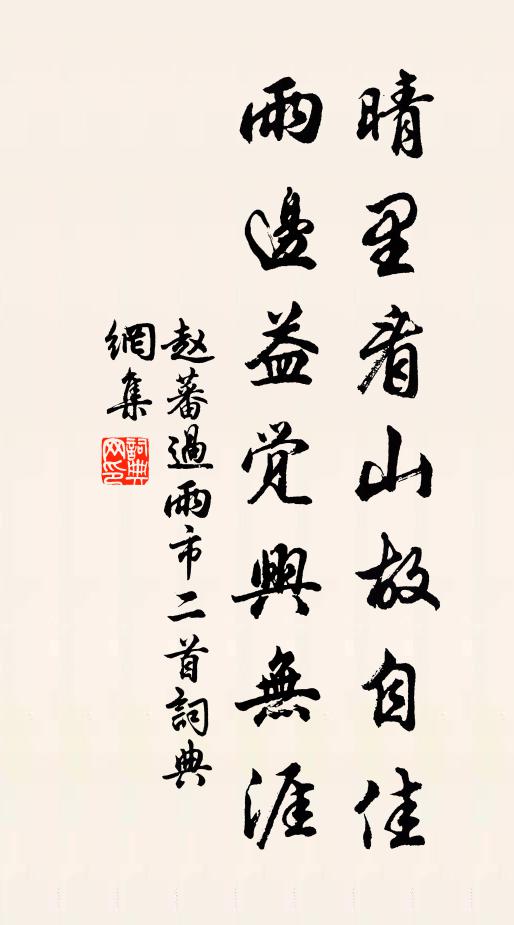 晴里看山故自佳
雨邊益覚興無涯
赵蕃過雨市二首詞典
網集
詞典网印